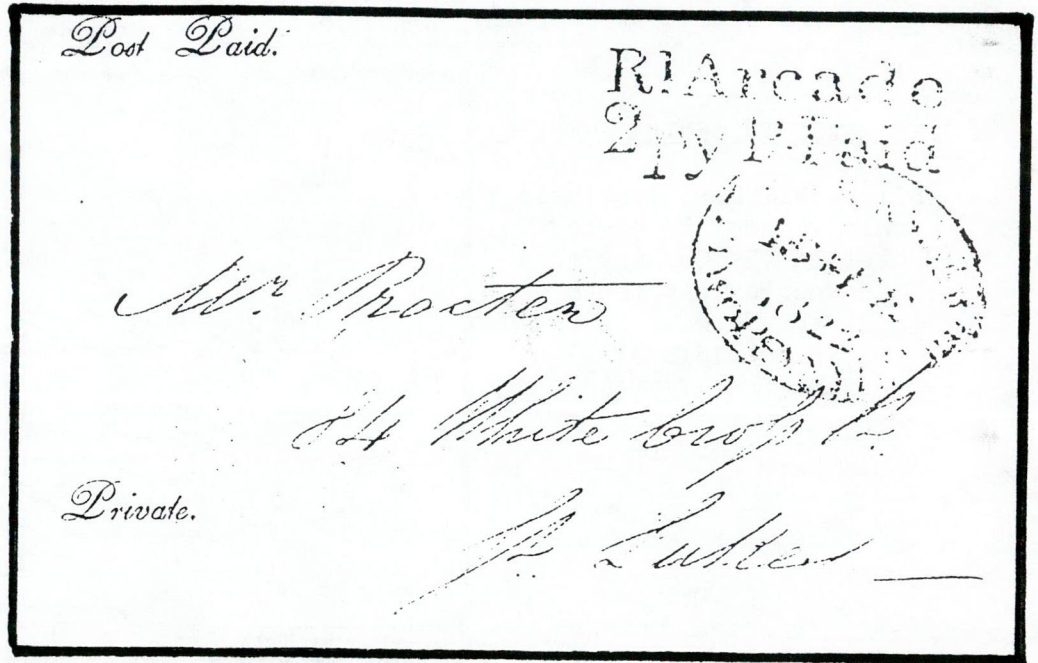 Post Paid.
Rl Arcade
2 py P.Paid
1822
Mr. Procter
84 White Cross St
St Lukes
Private.